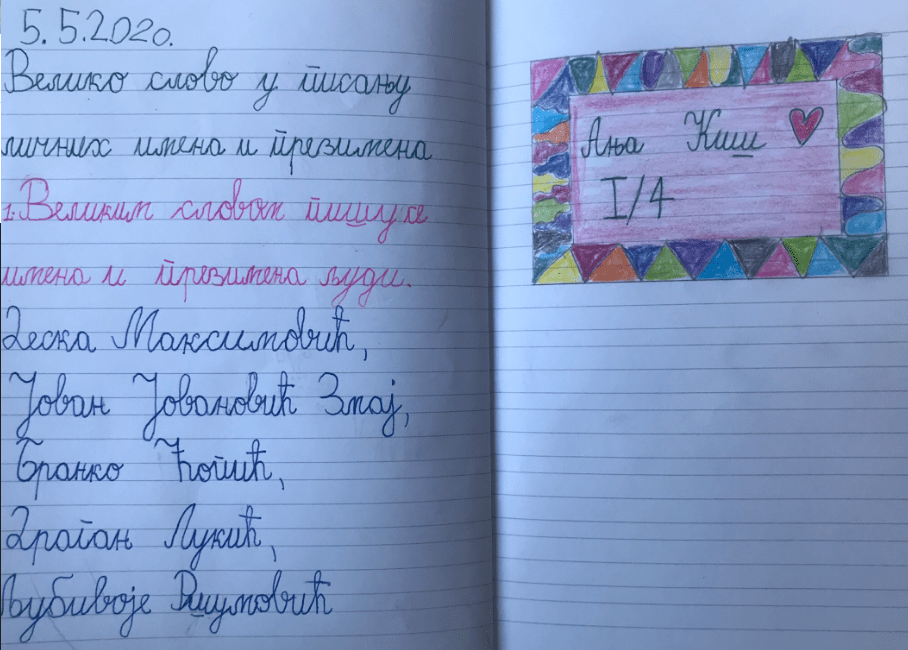 5.5.2020.
Велико слово у писању
личних имена и презимена
1. Великим словом пишу се
имена и презимена људи.
Деска Максимовић,
Јован Јовановић Змај,
Бранко Ћопић,
Драган Лукић,
Љубивоје Ршумовић
Ања Киш
I/4